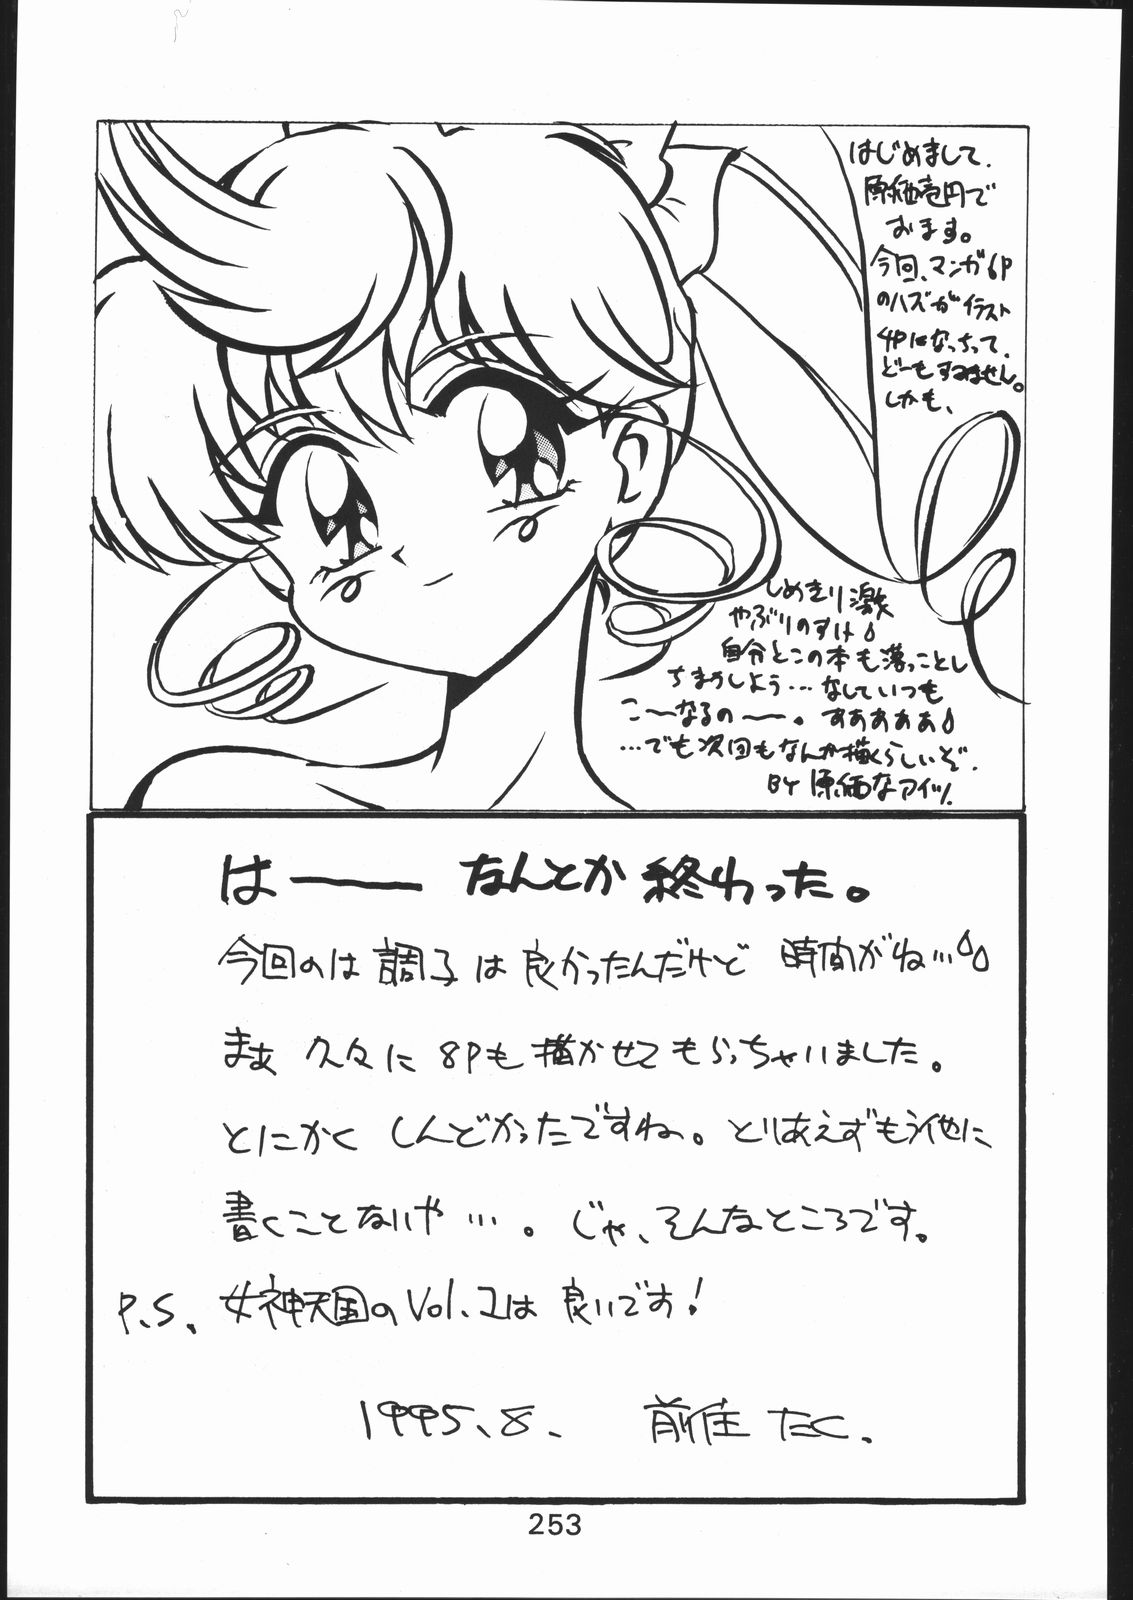 はじめまして.
原価壱円で
おます。
今回、マンガ6P
のハズがイラスト
4Pになっちって.
どーもすみません。
しかも、
しめきり激
やぶりのすけ
自分とこの本も落っことし
ちまうしよう…なしていつも
こ〜なるの〜。すああああ
…でも次回もなんか描くらしいぞ.
BY 原価なアイツ.
はー なんとか終わった。
今回のは調子は良かったんだけど 時間がね…
まあ 久々に 8Pも描かせてもらっちゃいました。
とにかく しんどかったですね。とりあえずもう他に
書くことないや…。じゃ、そんなところです。
P.S. 女神天国のVol.2は 良いです!
1995.8. 前住 たく.
253